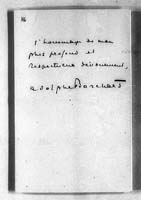 l'hommage de mon
plus profond et
respectueux dévouement,
adolphe Borchard